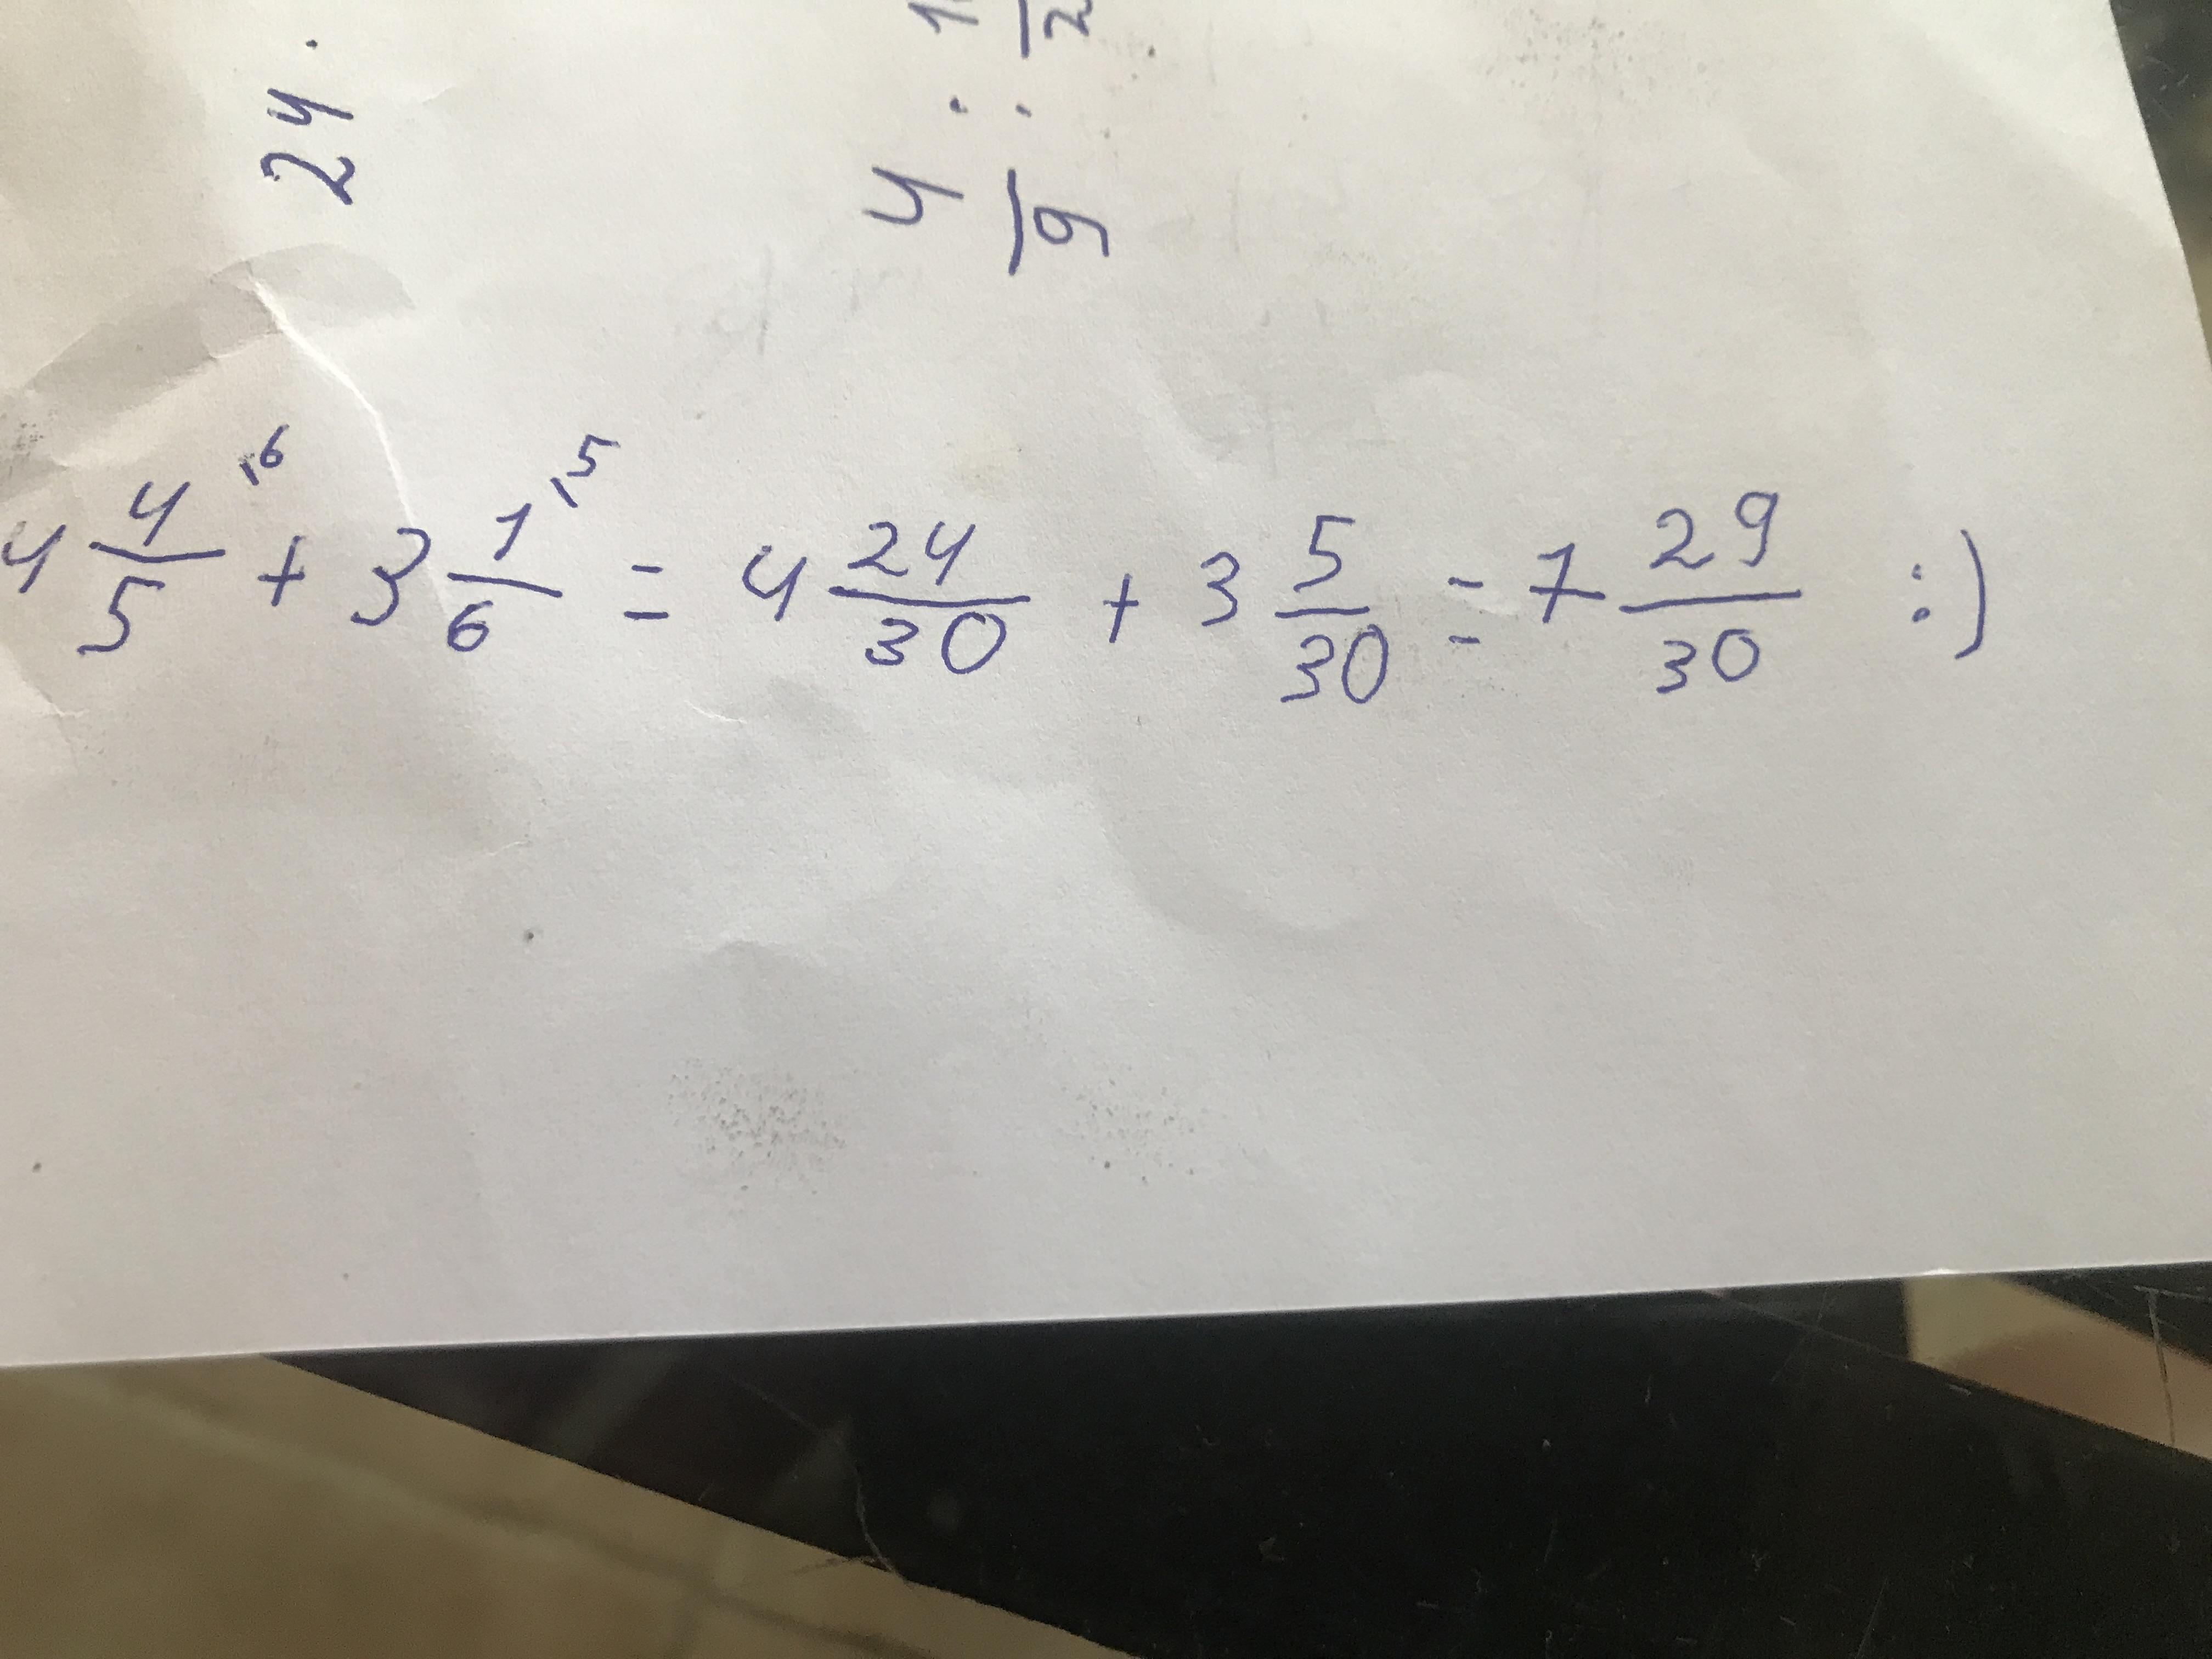 24 .
4/9 :
4 4/5 \6 + 3 1/6 \5 = 4 24/30 + 3 5/30 = 7 29/30 :)